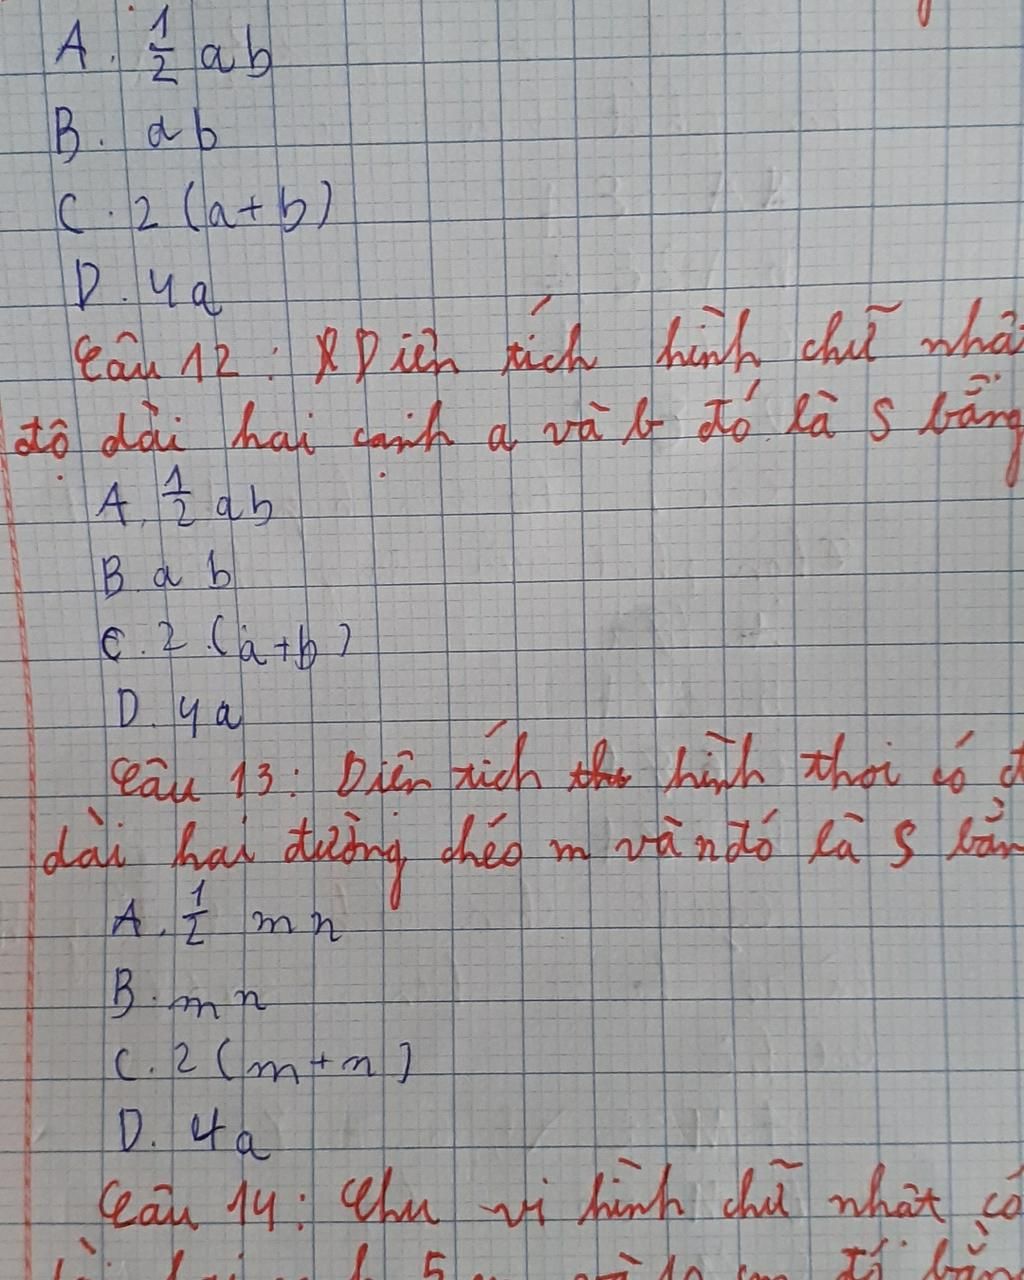 A. 1/2 ab
B. ab
C. 2 (a+b)
D. 4a
Câu 12: Diện tích hình chữ nhậ
độ dài hai cạnh a và b đó là S bằng
A. 1/2 ab
B. a b
C. 2. (a+b)
D. 4a
Câu 13: Diên tích hình thoi có đ
dài hai đường chéo m và n đó là S bằn
A. 1/2 mn
B. mn
C. 2 (m+n)
D. 4a
Câu 14: Chu vi hình chữ nhât có
5